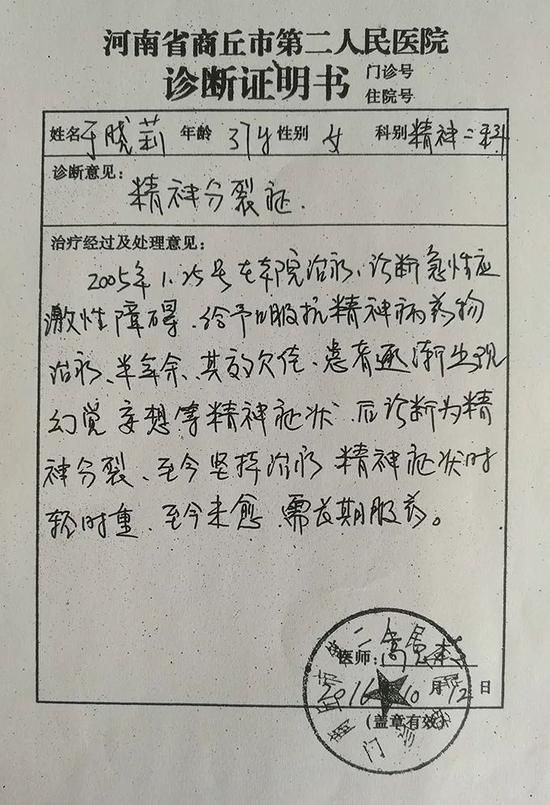 河南省商丘市第二人民医院
诊断证明书 门诊号
住院号
姓名 于晓莉 年龄 37岁 性别 女 科别 精神二科
诊断意见：
精神分裂症.
治疗经过及处理意见：
2005年1.25号在本院治疗、诊断急性应
激性障碍、给予口服抗精神病药物
治疗、半年余、其效欠佳、患者逐渐出现
幻觉妄想等精神症状 后诊断为精
神分裂、至今坚持治疗 精神症状时
轻时重、至今未愈、需长期服药。
医师：
2016 10 月 12 日
（盖章有效）